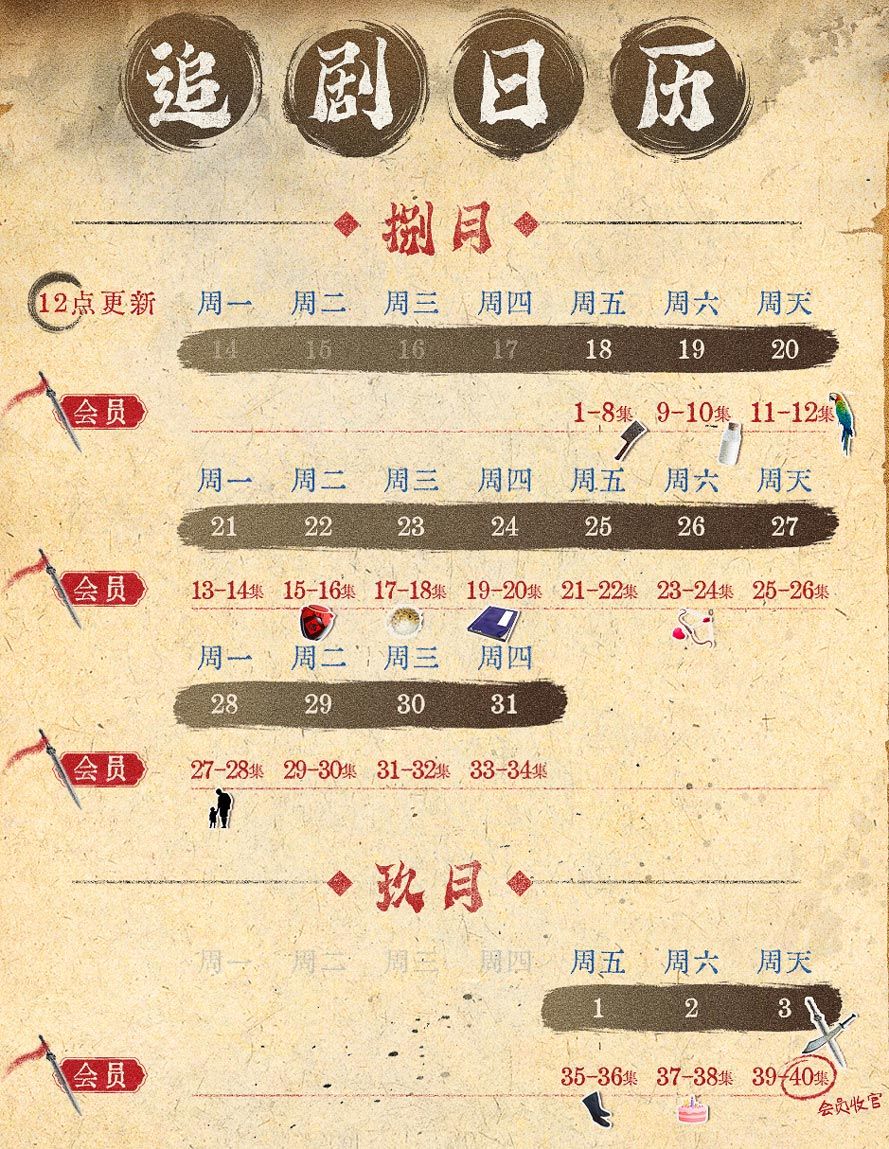 追剧日历
捌月
12点更新 周一 周二 周三 周四 周五 周六 周天
14 15 16 17 18 19 20
会员 1-8集 9-10集 11-12集
周一 周二 周三 周四 周五 周六 周天
21 22 23 24 25 26 27
会员 13-14集 15-16集 17-18集 19-20集 21-22集 23-24集 25-26集
周一 周二 周三 周四
28 29 30 31
会员 27-28集 29-30集 31-32集 33-34集
玖月
周一 周二 周三 周四 周五 周六 周天
1 2 3
会员 35-36集 37-38集 39-40集
会员收官